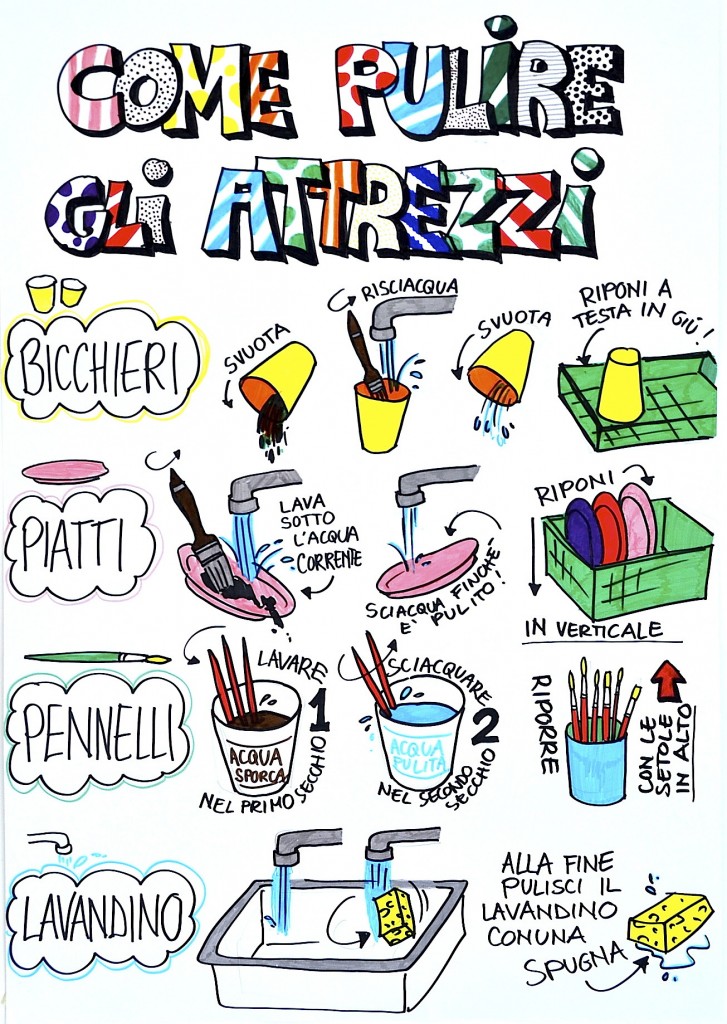 COME PULIRE
GLI ATTREZZI
BICCHIERI
SVUOTA
RISCIACQUA
SVUOTA
RIPONI A
TESTA IN GIÚ!
PIATTI
LAVA
SOTTO
L'ACQUA
CORRENTE
SCIACQUA FINCHE-
E' PULITO!
RIPONI
IN VERTICALE
PENNELLI
LAVARE
1
ACQUA
SPORCA
NEL PRIMO SECCHIO
SCIACQUARE
2
ACQUA
PULITA
NEL SECONDO
SECCHIO
RIPORRE
CON LE
SETOLE
IN ALTO
LAVANDINO
ALLA FINE
PULISCI IL
LAVANDINO
CONUNA
SPUGNA